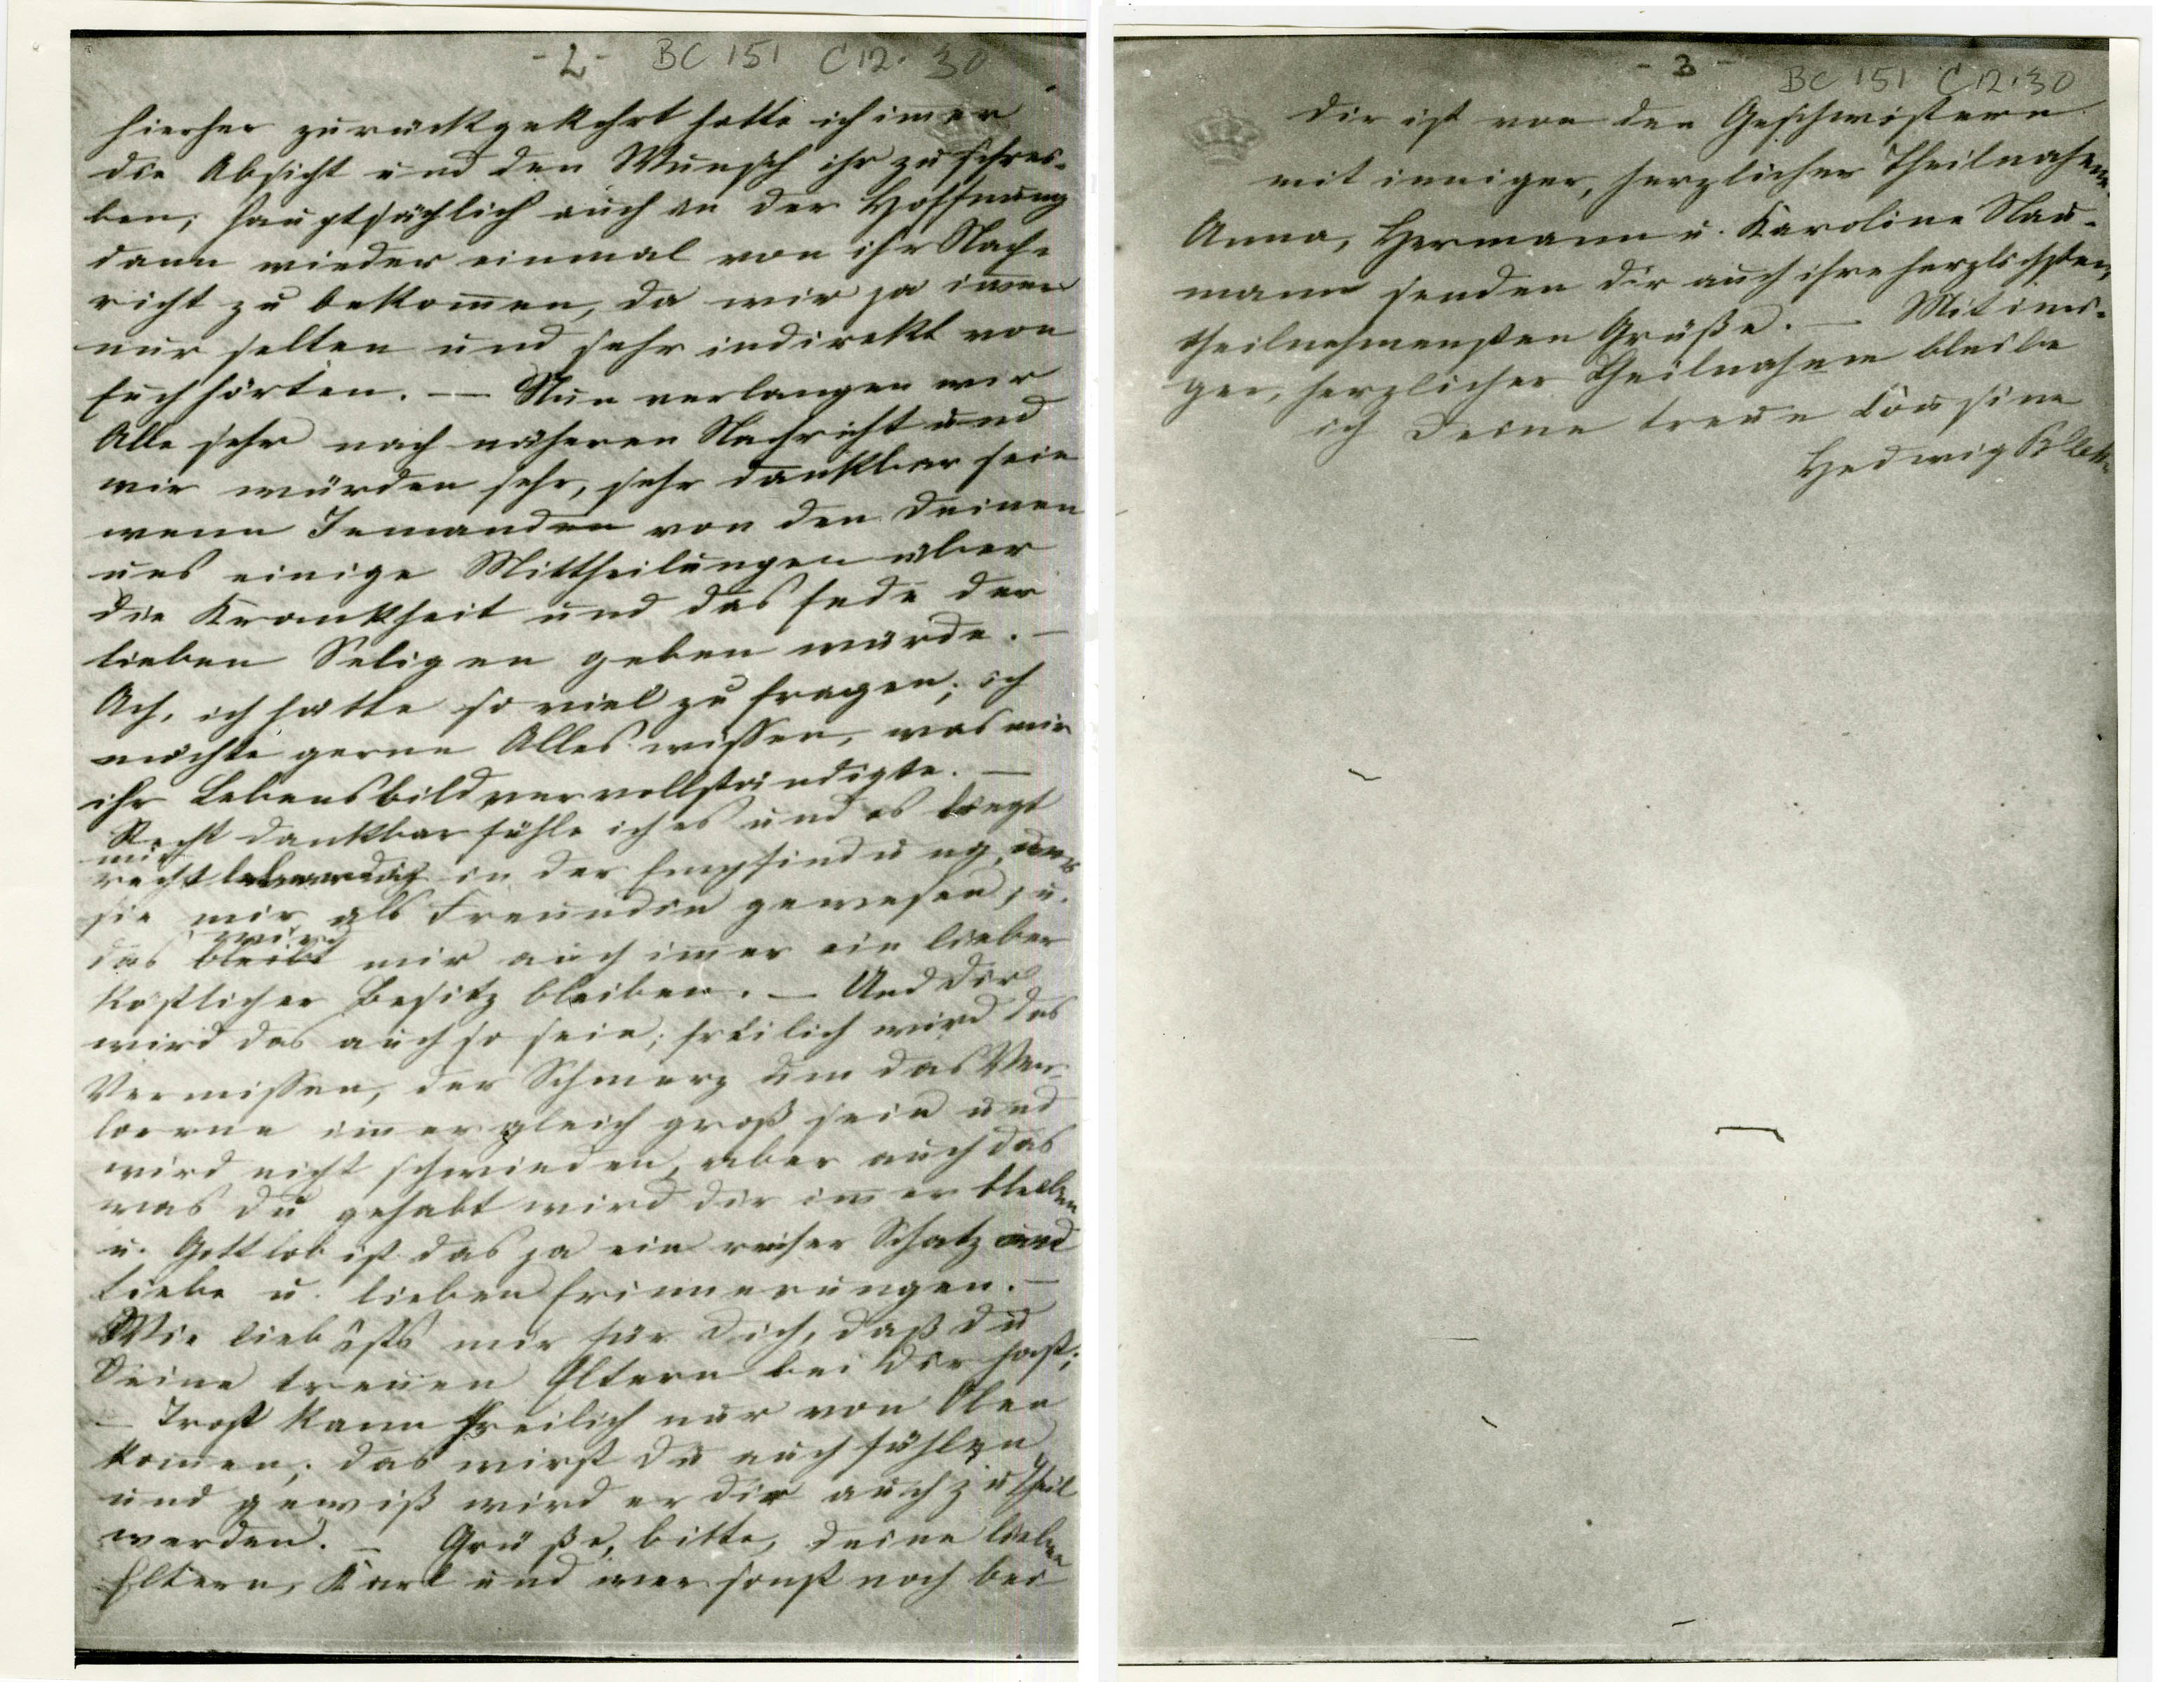 - 2 - BC 151 C12.30
hierher zurückgekehrt hatte ich im̄er
die Absicht und den Wunsch ihr zu schrei-
ben; hauptsächlich auch in der Hoffnung
dann wieder einmal von ihr Nach-
richt zu bekom̄en, da wir ja im̄er
nur selten und sehr indirekt von
Euch hörten. — Nun verlangen wir
Alle sehr nach näheren Nachricht und
wir würden sehr, sehr dankbar sein
wenn Jemanden von den Deinen
uns einige Mittheilungen über
die Krankheit und das Ende der
lieben Seligen geben würde. —
Ach, ich hätte so viel zu fragen; ich
möchte gerne Alles wissen, was mir
ihr Lebensbild vervollständigte. —
Recht dankbar fühle ich es und es liegt
mir
recht lebendig in der Empfindung, was
sie mir als Freundin gewesen, u.
wird
das bleibt mir auch im̄er ein lieber
köstlicher Besitz bleiben. — Und Dir
wird das auch so sein; freilich wird das
Vermissen, der Schmerz um das Ver-
lorene im̄er gleich groß sein und
wird nicht schwinden, aber auch das
was du gehabt wird dir im̄er bleiben
u. Gottlob ist das ja ein reicher Schatz
Liebe u. lieben Erinnerungen. —
Wie lieb ists mir für Dich, daß du
Deine treuen Eltern bei dir hast;
— Trost kann freilich nur von Oben
kom̄en; das wirst du auch fühlen
und gewiß wird er dir auch zu Theil
werden. — Grüße, bitte, deine lieben
Eltern, Karl und wer sonst noch bei
- 3 - BC 151 C12.30
dir ist von den Geschwistern
mit inniger, herzlicher Theilnahme.
Anna, Hermann u. Karoline Nau-
mann senden dir auch ihre herzlichsten,
theilnehmensten Grüße. — Mit inni-
ger, herzlicher Theilnahme bleibe
ich Deine treue Cousine
Hedwig Bleek